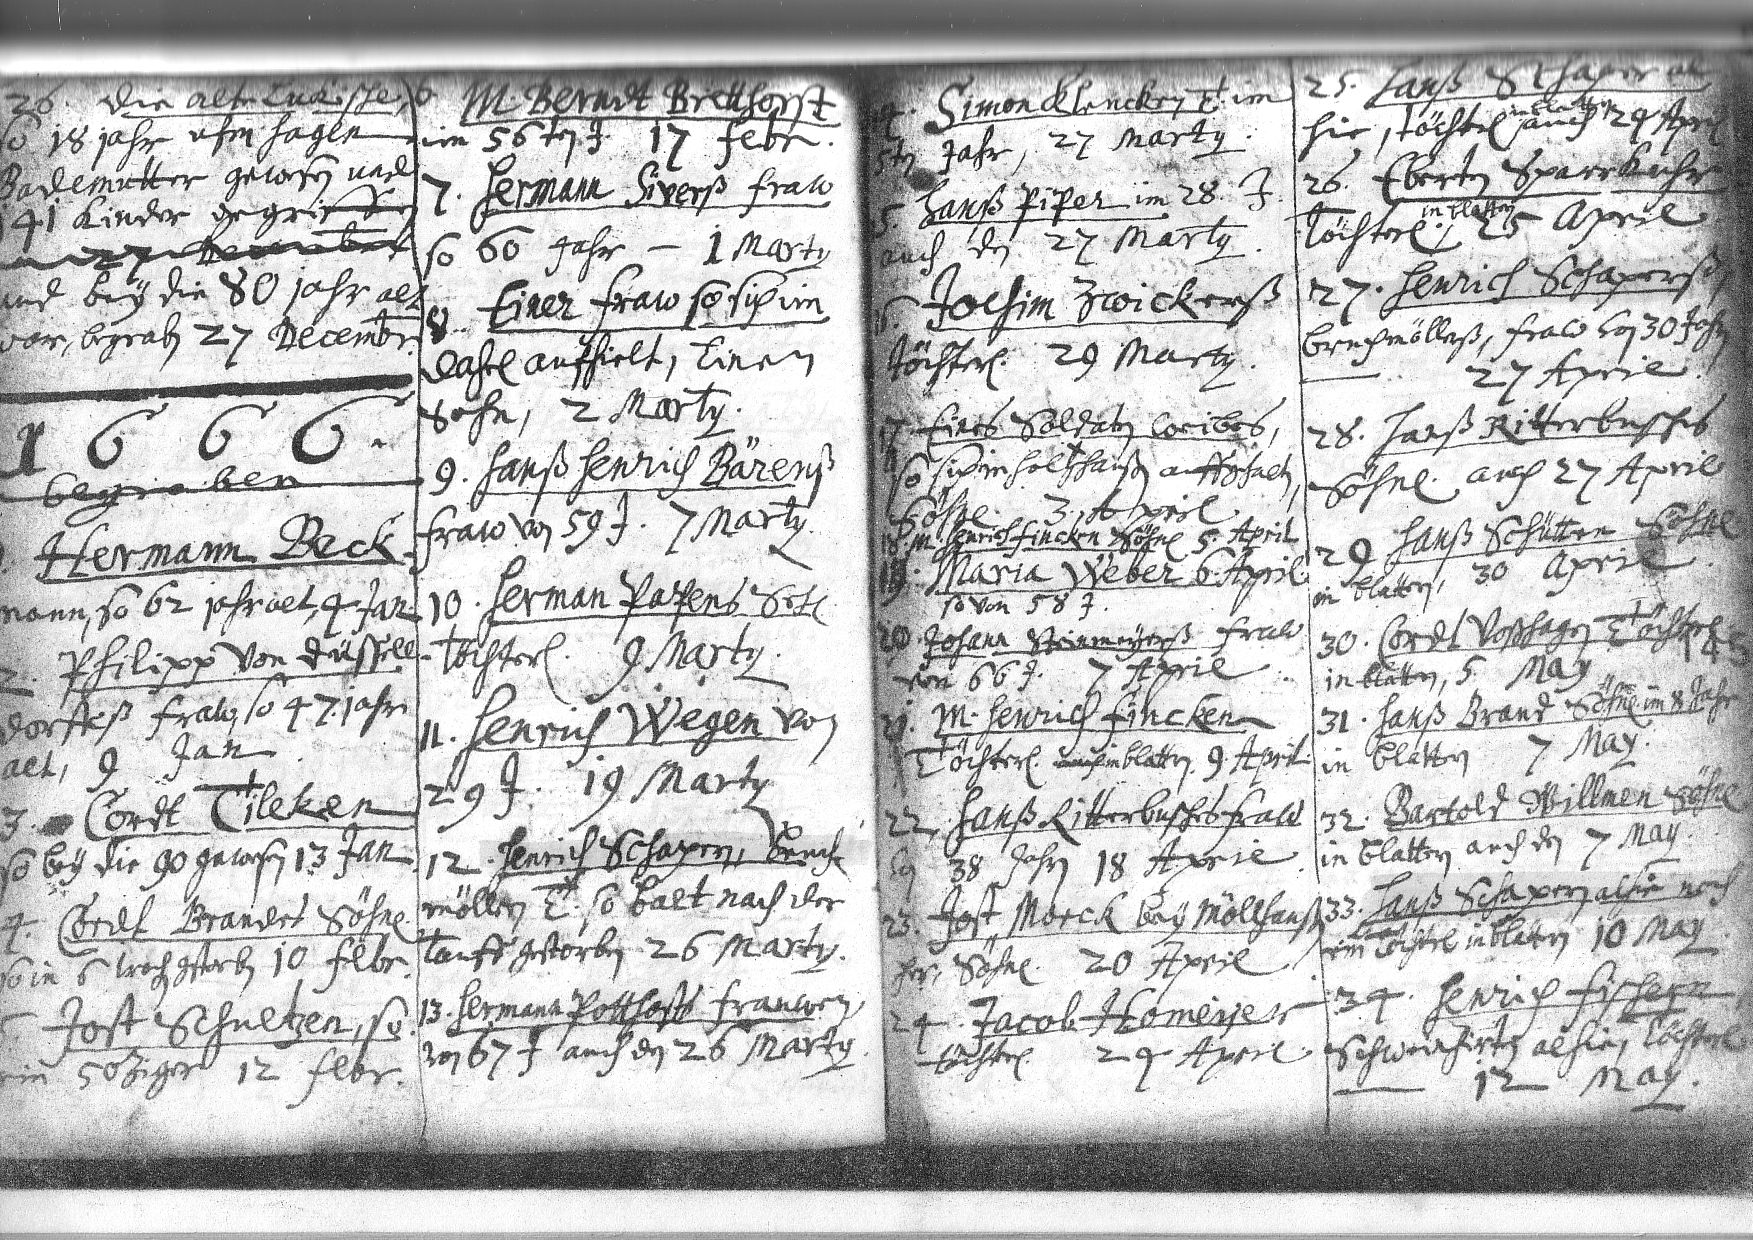 26. die alte Lucksche,
so 18 jahr ufm hagen
Bademutter gewesen und
141 Kinder begriffen
27 Decembr
und bey die 80 jahr alt
war, begrabn 27 Decembr.
1666.
begraben
Hermann Beck
mann, so 62 jahr alt, 4 Jan
2. Philipp von düssell
dorffeß fraw, so 47 jahr
alt, 9 Jan
3. Cordt Tileken
so bey die 90 gewesen 13 Jan
4. Cordt Brandes Söhnl.
so in 6 woch gstorbn 10 febr.
Jost Schultzen, so
ein 50ziger 12 febr.
6 M. Berndt Bretthorst
im 56ten J. 17 febr.
7. Hermann Siverß fraw
so 60 Jahr — 1 Marty
8. Einer fraw so sich im
auffhielt, Einen
Sohn, 2 Marty.
9. Hanß Henrich Bärenß
fraw von 59 J. 7 Marty.
10. Herman Papens Sehl.
Töchterl. 9 Marty.
11. Henrich Wegen von
29 J. 19 Marty
12. Henrich Schapers, bruch
möllers T. so balt nach der
Tauff gestorben 26 Marty.
13. Hermann Potthasts frauwen
von 67 J auch den 26 Marty.
Simon Klencken T. im
5ten Jahr, 27 Marty.
5. Hanß Piper im 28. J.
auch den 27 Marty.
Jochim Zwickerß
Töchterl. 29 Marty.
17. Eines Soldaten weibes,
so sich in holtzhaußn auffhalten,
Söhnl. 3. April
18. M. Henrich fincken Söhnl 5. April
19. Maria Weber 6. April
so von 58 J.
20. Johann Steinmeyerß fraw
von 66 J. 7 April
21. M. Henrich fincken
Töchterl. auch in blattern. 9. April
22. Hanß Ritterbusches fraw
38 Jahrn 18 April
23. Jost Morck bey Möllhauß
her, Söhnl. 20 April
24. Jacob Homeyer
töchterl. 24 April.
25. Hanß Schaper al
hie, töchterl in blattern auch 24 April
26. Eberten Sparrkuhr
Töchterl. in blattern 25 April
27. Henrich Schaperß,
bruchmöllerß, fraw von 30 Jahrn
27 April.
28. Hanß Ritterbusches
Söhnl. auch 27 April
29 Hanß Schütten Söhnl
in blattern, 30 April.
30. Cordt Voßhagen Töchterl
in blattern, 5. May
31. Hanß Brand Söhnl. im 8 Jahr
in blattern 7 May.
32. Bartold Willmen Söhnl
in blattern auch den 7 May.
33. Hanß Schapers alhie noch
ein Töchterl in blattern 10 May.
34. Henrich fischern,
Schweinhirten alhie, Töchterl
12 May.